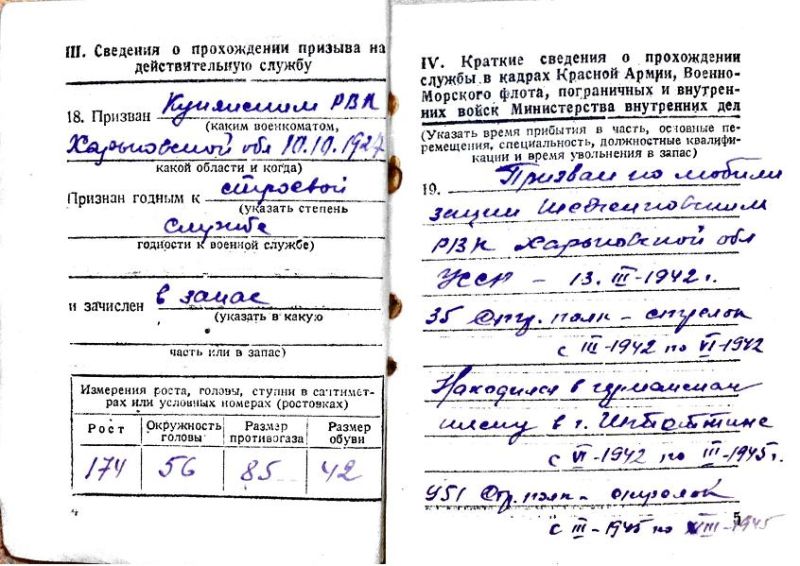 III. Сведения о прохождении призыва на
действительную службу
18. Призван Купянским РВК
(каким военкоматом,
Харьковской обл 10.10.1927
какой области и когда)
Признан годным к строевой
(указать степень
службе
годности к военной службе)
и зачислен в запас
(указать в какую
часть или в запас)
Измерения роста, головы, ступни в сантимет-
рах или условных номерах (ростовках)
Рост Окружность головы Размер противогаза Размер обуви
174 56 85 42
4
IV. Краткие сведения о прохождении
службы в кадрах Красной Армии, Военно-
Морского флота, пограничных и внутрен-
них войск Министерства внутренних дел
(Указать время прибытия в часть, основные пе-
ремещения, специальность, должностные квалифи-
кации и время увольнения в запас)
19. Призван по мобили
зации Шевченковским
РВК Харьковской обл
УССР – 13. III-1942 г.
35 Стр. полк – стрелок
с III-1942 по VI-1942
Находился в германском
плену в г.
с VI-1942 по III-1945 г.
951 Стр. полк – стрелок
с III-1945 по VIII-1945
5